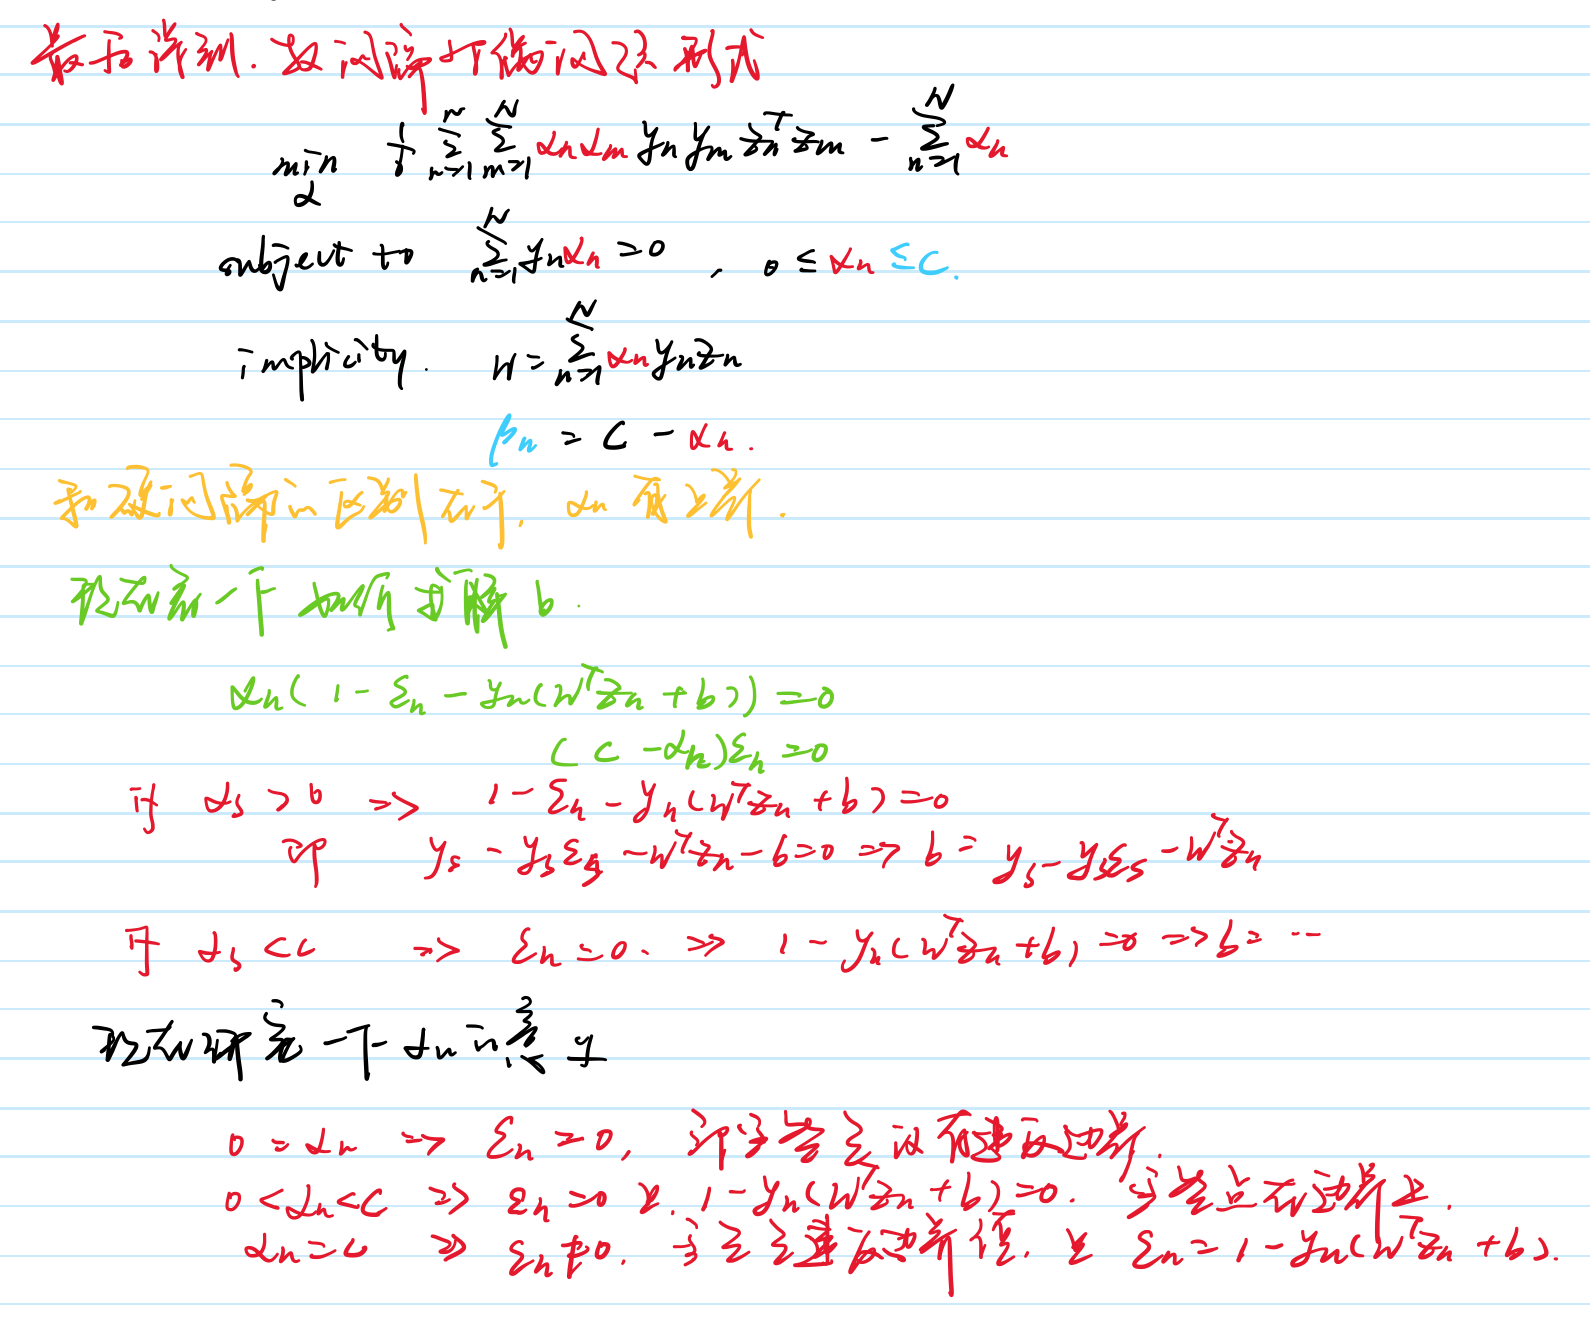 最后得到.软间隔对偶问题形式
min α ½ Σ_{n=1}^{N} Σ_{m=1}^{N} αn αm yn ym zn^T zm - Σ_{n=1}^{N} αn
subject to Σ_{n=1}^{N} yn αn = 0 , 0 ≤ αn ≤ C.
implicity. w = Σ_{n=1}^{N} αn yn zn
βn = C - αn.
和硬间隔的区别在于, αn 有上界.
现在看一下如何求解 b.
αn( 1 - ξn - yn(w^T zn + b)) = 0
( C - αn)ξn = 0
if αs > 0 => 1 - ξn - yn(w^T zn + b) = 0
即 ys - ys ξs - w^T zn - b = 0 => b = ys - ys ξs - w^T zn
若 αs < C => ξn = 0. => 1 - yn(w^T zn + b) = 0 => b = ...
现在研究一下 αn 的意义
0 = αn => ξn = 0, 没有违反边界.
0 < αn < C => ξn = 0 且. 1 - yn(w^T zn + b) = 0. 点在边界上.
αn = C => ξn ≠ 0. 违反边界值. 且 ξn = 1 - yn(w^T zn + b).